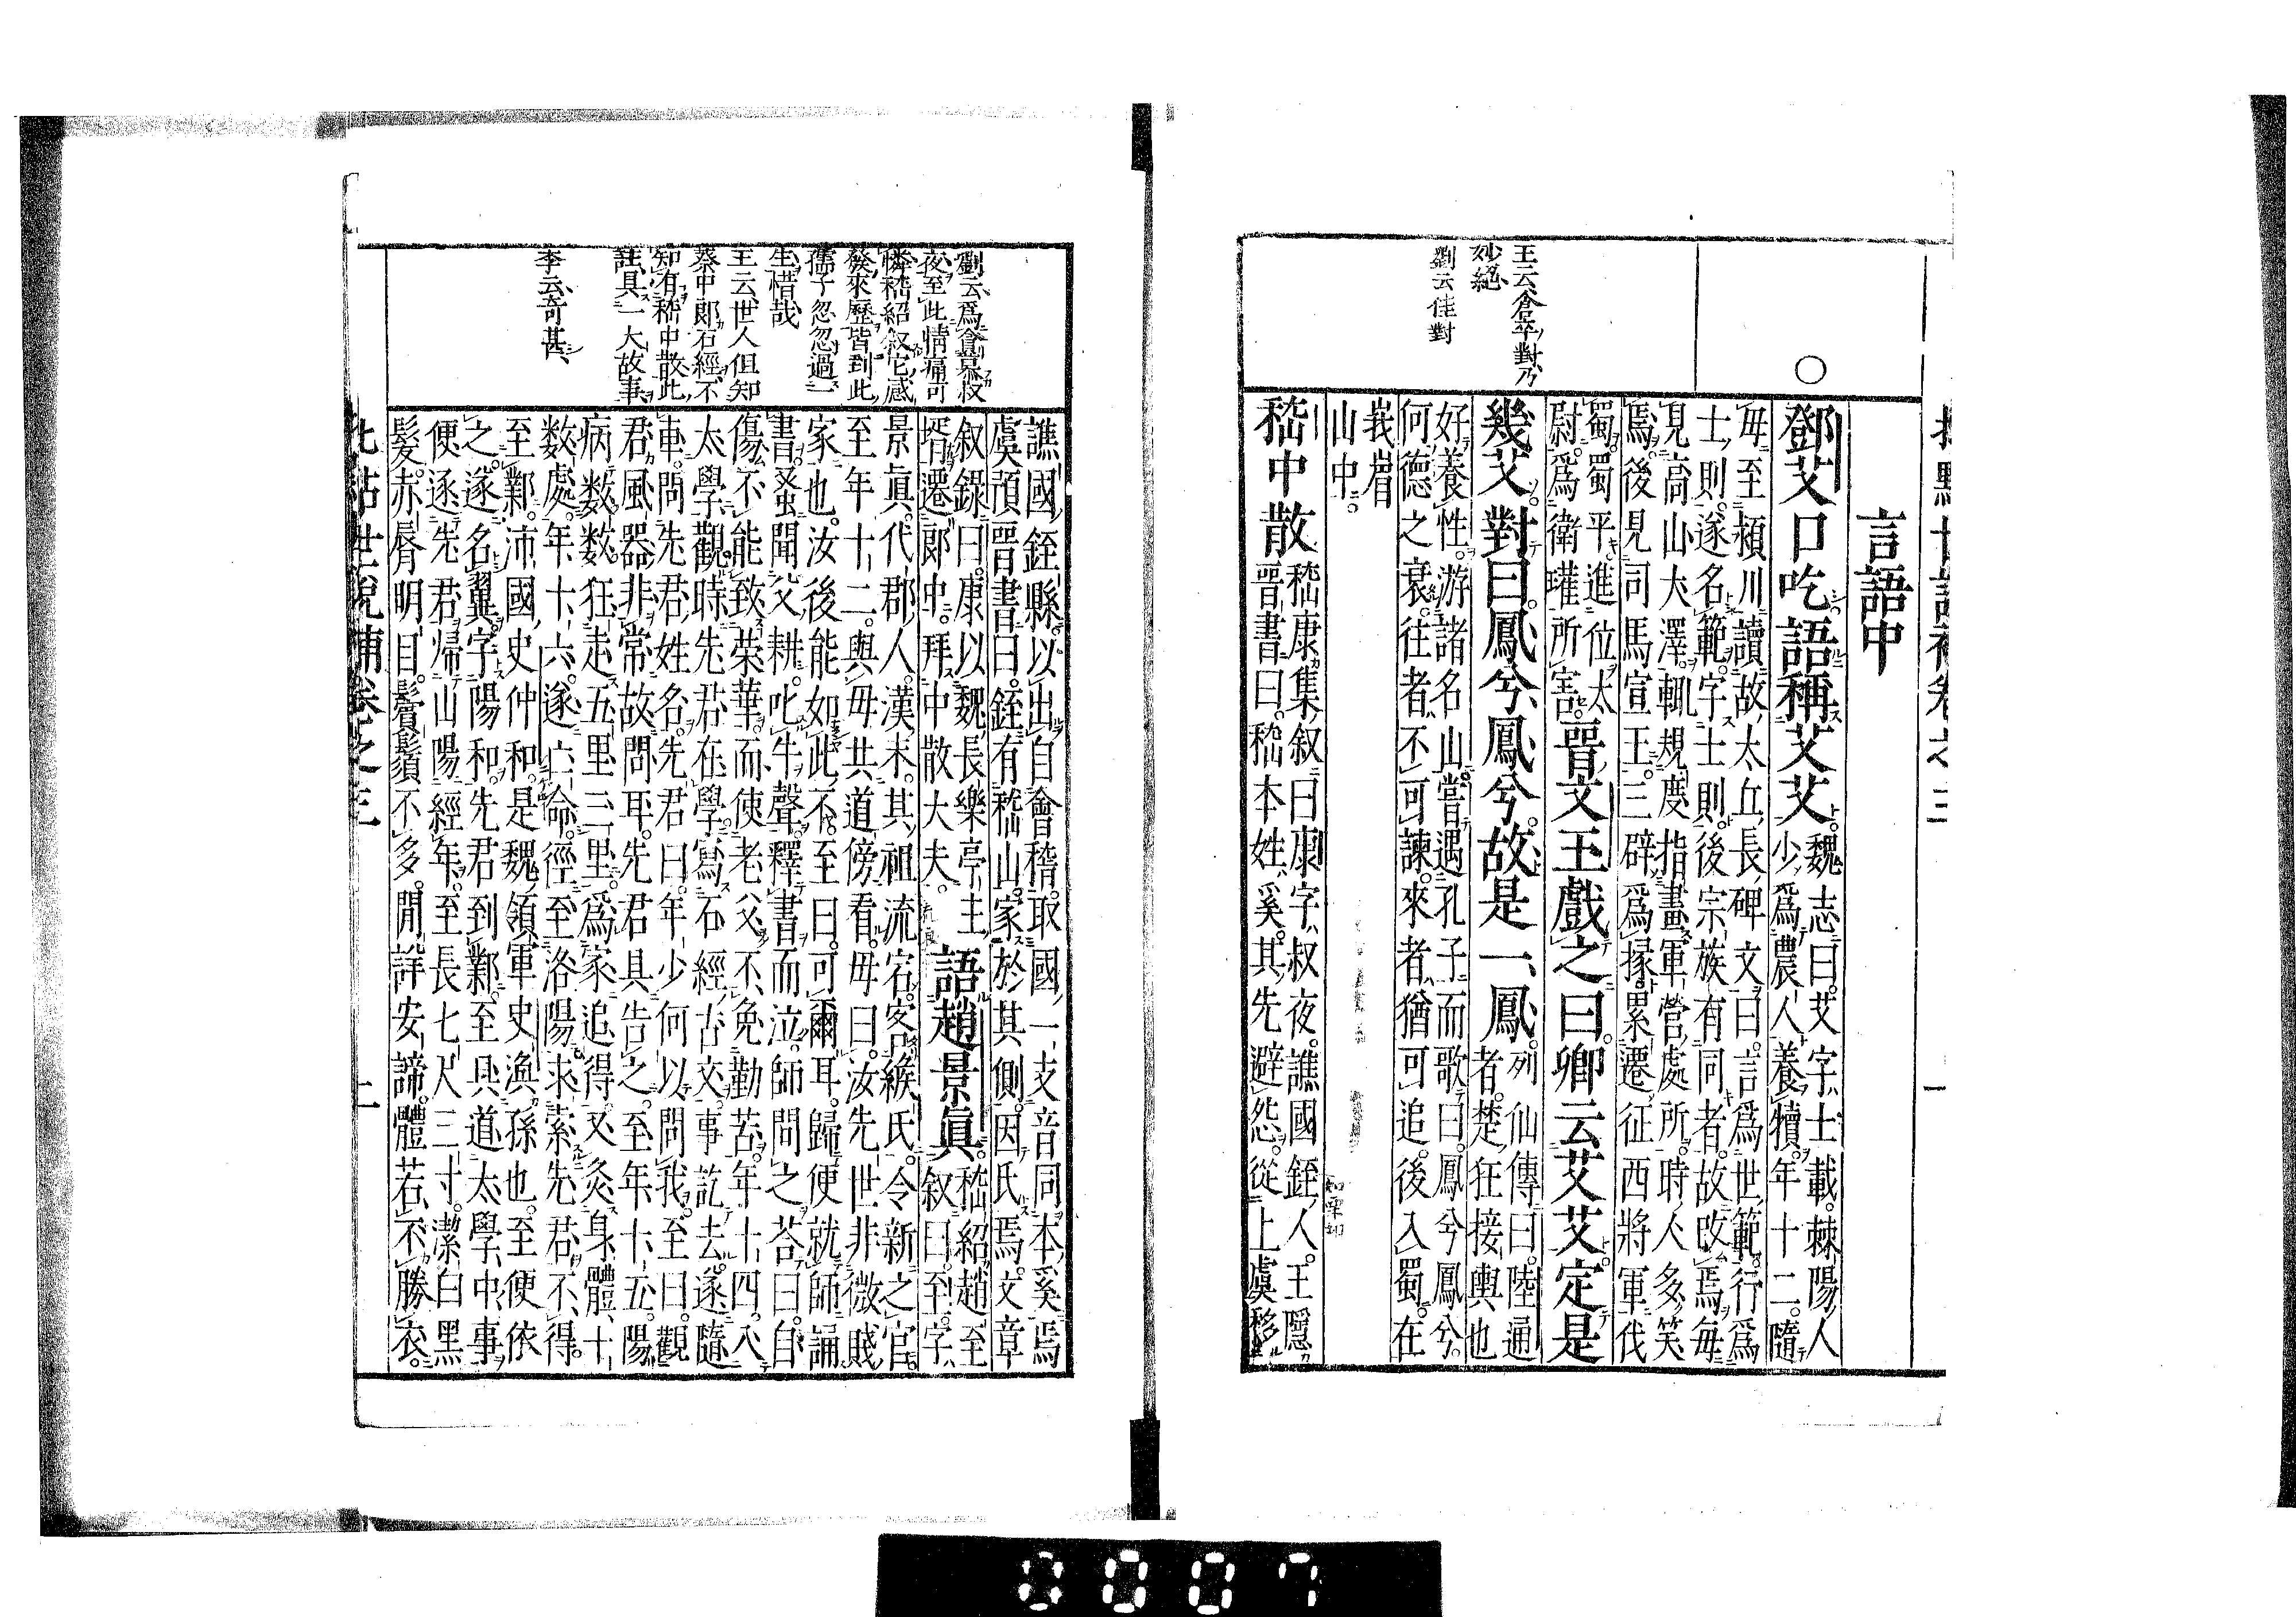 言語中
鄧艾口吃語稱艾艾。魏志曰。艾字士載。棘陽人
少爲農人養犢。年十二。隨
母至潁川讀故太丘長碑文曰。言爲世範。行爲
士則。遂名範。字士則。後宗族有同者。故改焉。毎
見高山大澤。輒規度指畫軍營處所。時人多笑
焉。後見司馬宣王。三辟爲掾。累遷征西將軍。伐
蜀。蜀平。進位太
尉。爲衛瓘所害。晉文王戲之曰。卿云艾艾。定是
幾艾。對曰。鳳兮鳳兮。故是一鳳。列仙傳曰。陸通
者。楚狂接輿也
好養性。游諸名山。嘗遇孔子而歌曰。鳳兮鳳兮。
何德之衰。往者不可諫。來者猶可追。後入蜀。在
峩嵋
山中。
嵇中散嵇康集叙曰。康字叔夜。譙國銍人。王隱
晉書曰。嵇本姓奚。其先避怨。從上虞移
王云倉卒對乃
妙絕
劉云佳對
譙國銍縣。以出自會稽。取國一支音同本奚焉
虞預晉書曰。銍有嵇山。家於其側。因氏焉。文章
叙錄曰。康以魏長樂亭主
壻。遷郎中。拜中散大夫。語趙景眞。嵇紹趙至
叙曰。至字
景眞。代郡人。漢末。其祖流宕。客緱氏。令新之官。
至年十二。與母共道傍看。母曰。汝先世非微賤
家也。汝後能如此不。至曰。可爾耳。歸便就師誦
書。蚤聞父耕。叱牛聲。釋書而泣。師問之。荅曰。自
傷不能致榮華。而使老父不免勤苦。年十四。入
太學觀。時先君在學。寫石經古文。事訖去。遂隨
車。問先君姓名。先君曰。年少何以問我。至曰。觀
君風器非常。故問耳。先君具告之。至年十五。陽
病。數數狂走五里三里。爲家追得。又灸身體十
數處。年十六。遂亡命。徑至洛陽。求索先君不得。
至鄴。沛國史仲和。是魏領軍史渙孫也。至便依
之。遂名翼。字陽和。先君到鄴。至具道太學中事
便逐先君歸山陽經年。至長七尺三寸。潔白黑
髮。赤脣明目。鬢鬚不多。閒詳安諦。體若不勝衣。
劉云爲
夜至此情痛可
憐嵇紹叙它感
發來歷皆到此
孺子忽忽過一
生惜哉
王云世人但知
蔡中郞石經不
知有嵇中散此
註具一大故事
李云奇甚
世說補卷之三
二
0007